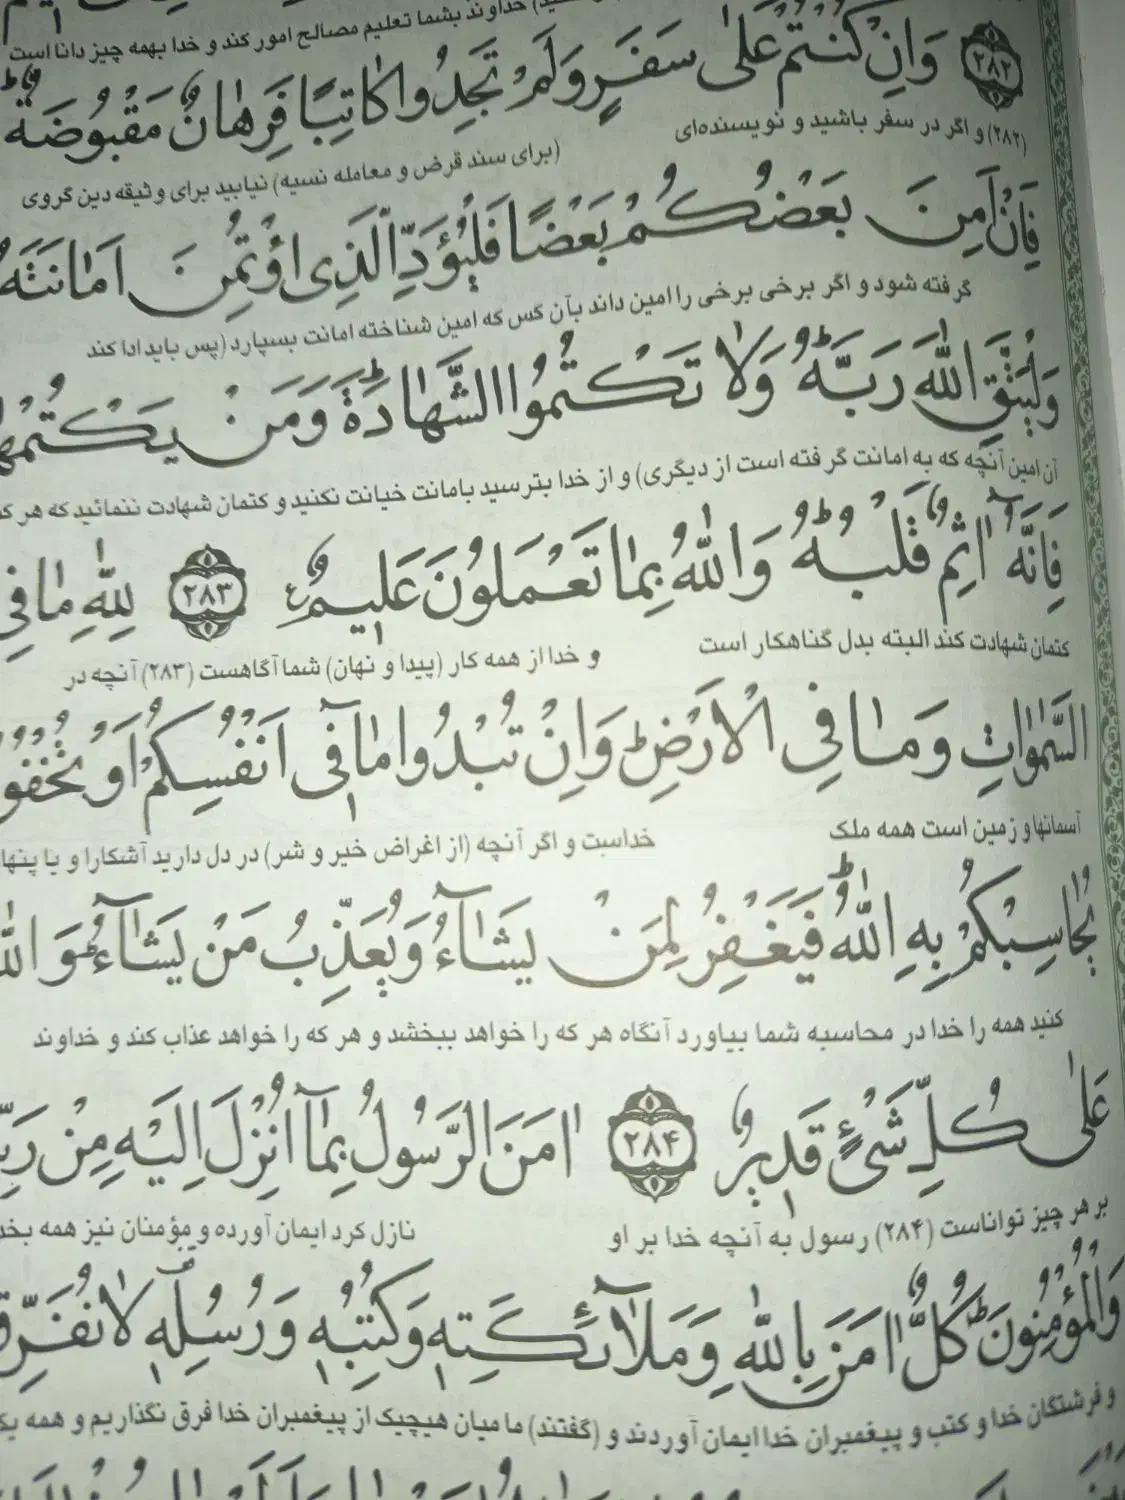 خداوند بشما تعلیم مصالح امور کند و خدا بهمه چیز دانا است
۲۸۲ وَاِنْ كُنْتُمْ عَلٰى سَفَرٍ وَلَمْ تَجِدُوا كَاتِبًا فَرِهَانٌ مَقْبُوضَةٌ
(۲۸۲) و اگر در سفر باشید و نویسنده‌ای (برای سند قرض و معامله نسیه) نیابید برای وثیقه دین گروی
فَاِنْ اَمِنَ بَعْضُكُمْ بَعْضًا فَلْيُؤَدِّ الَّذِى اؤْتُمِنَ اَمَانَتَهُ
گرفته شود و اگر برخی برخی را امین داند بآن کس که امین شناخته امانت بسپارد (پس باید ادا کند
وَلْيَتَّقِ اللّٰهَ رَبَّهُ وَلَا تَكْتُمُوا الشَّهَادَةَ وَمَنْ يَكْتُمْهَا
آن امین آنچه که به امانت گرفته است از دیگری) و از خدا بترسید بامانت خیانت نکنید و کتمان شهادت ننمائید که هر
فَاِنَّهُ اٰثِمٌ قَلْبُهُ وَاللّٰهُ بِمَا تَعْمَلُونَ عَلِيمٌ ۲۸۳ لِلّٰهِ مَا فِى
کتمان شهادت کند البته بدل گناهکار است و خدا از همه کار (پیدا و نهان) شما آگاهست (۲۸۳) آنچه در
السَّمٰوَاتِ وَمَا فِى الْاَرْضِ وَاِنْ تُبْدُوا مَا فِى اَنْفُسِكُمْ اَوْ
آسمانها و زمین است همه ملک خداست و اگر آنچه (از اغراض خیر و شر) در دل دارید آشکارا و یا
يُحَاسِبْكُمْ بِهِ اللّٰهُ فَيَغْفِرُ لِمَنْ يَشَآءُ وَيُعَذِّبُ مَنْ يَشَآءُ
کنید همه را خدا در محاسبه شما بیاورد آنگاه هر که را خواهد ببخشد و هر که را خواهد عذاب کند و خداوند
عَلٰى كُلِّ شَىْءٍ قَدِيرٌ ۲۸۴ اٰمَنَ الرَّسُولُ بِمَآ اُنْزِلَ اِلَيْهِ مِنْ
بر هر چیز تواناست (۲۸۴) رسول به آنچه خدا بر او نازل کرد ایمان آورده و مؤمنان نیز همه
وَالْمُؤْمِنُونَ كُلٌّ اٰمَنَ بِاللّٰهِ وَمَلَآئِكَتِهِ وَكُتُبِهِ وَرُسُلِهِ لَا نُفَرِّقُ
و فرشتگان خدا و کتب و پیغمبران خدا ایمان آوردند و (گفتند) ما میان هیچیک از پیغمبران خدا فرق نگذاریم و همه